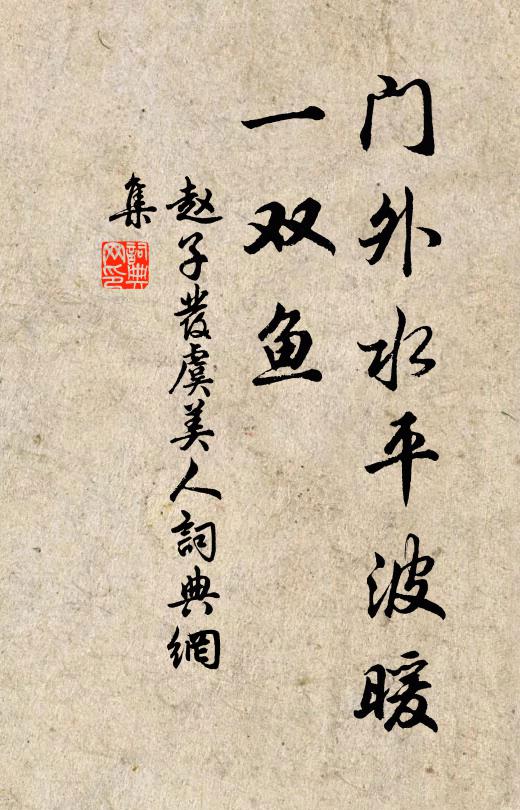 门外水平波暖
一双鱼
赵子發虞美人詞典網
集
詞典
网印